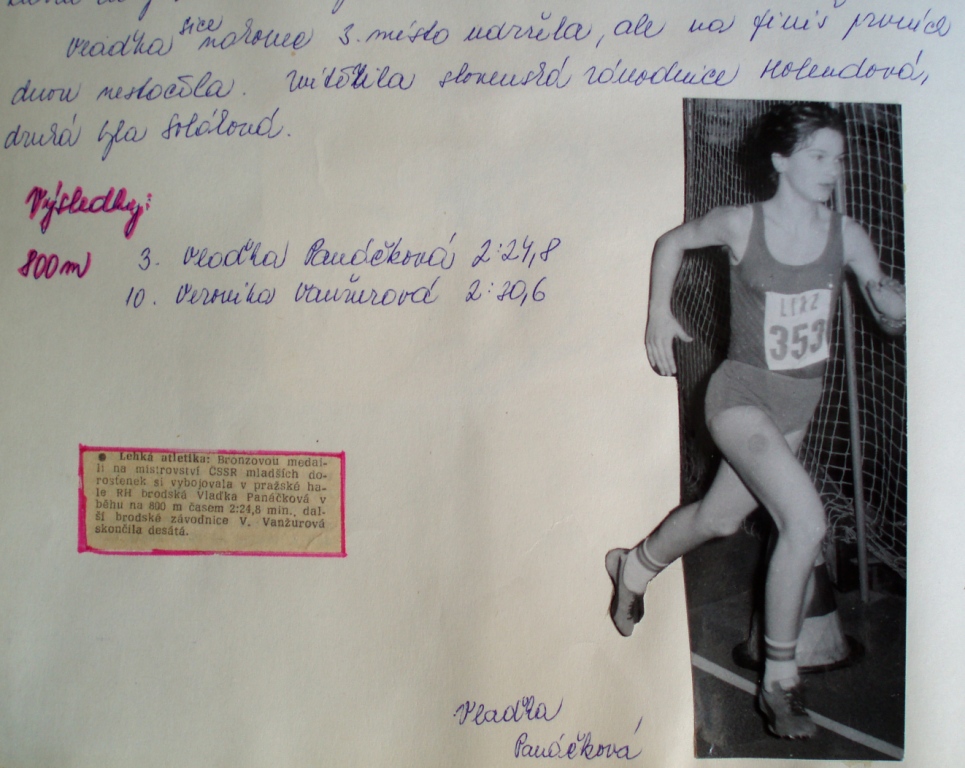 Vlaďka sice nakonec 3. místo udržela, ale na finiš prvních
dvou nestačila. Zvítězila slovenská závodnice Holendová,
druhá byla Solárová.
Výsledky:
800m 3. Vlaďka Panáčková 2:24,8
10. Veronika Vanžurová 2:30,6
LIAZ
353
● Lehká atletika: Bronzovou medai-
li na mistrovství ČSSR mladších do-
rostenek si vybojovala v pražské ha-
le RH brodská Vlaďka Panáčková v
běhu na 800 m časem 2:24,8 min., dal-
ší brodská závodnice V. Vanžurová
skončila desátá.
Vlaďka
Panáčková